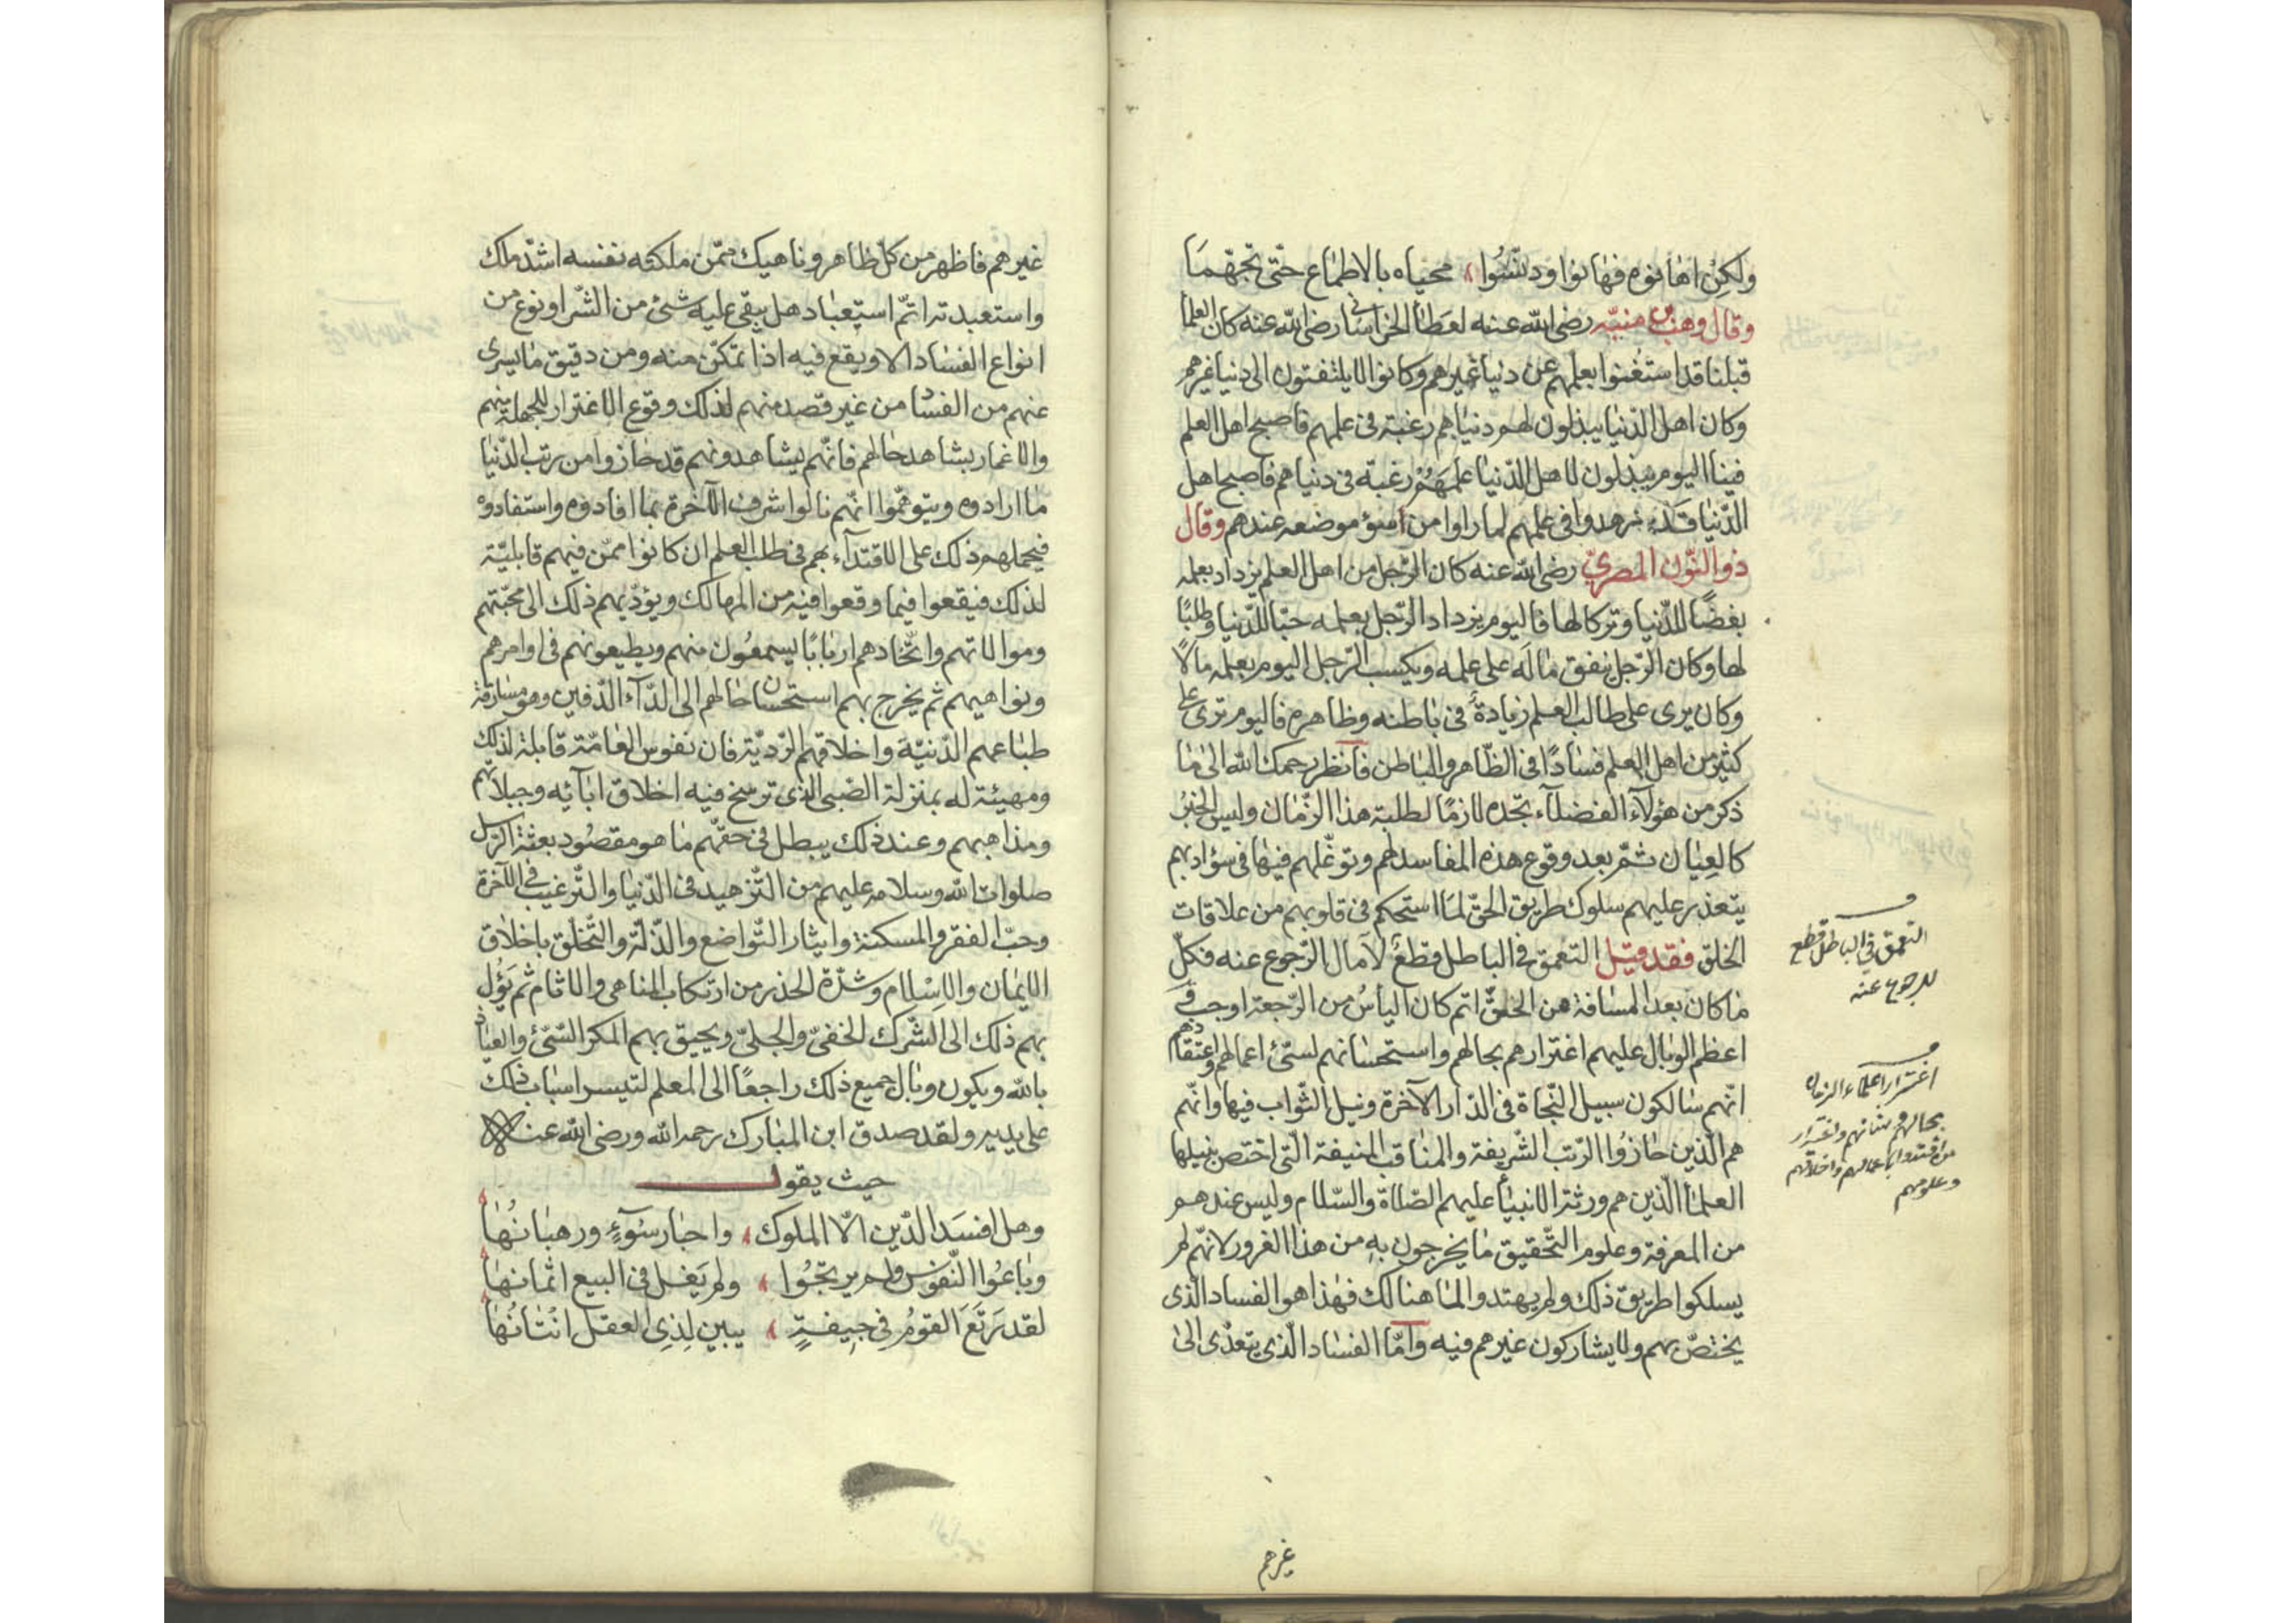 ولكن اهانوه فهانوا ودنسوا محياه بالاطماع حتى تجهما
وقال وهب بن منبّه رضى الله عنه لعطا الخراسانى رضى الله عنه كان العلما
قبلنا قد استغنوا بعلمهم عن دنيا غيرهم وكانوا لا يلتفتون الى دنيا غيرهم
وكان اهل الدّنيا يبذلون لهم دنياهم رغبة فى علمهم فاصبح اهل العلم
فينا اليوم يبذلون لاهل الدّنيا علمهم رغبة فى دنياهم فاصبح اهل
الدّنيا قد زهدوا فى علمهم لما راوا من سوء موضعه عندهم وقال
ذو النّون المصريّ رضى الله عنه كان الرّجل من اهل العلم يزداد بعلمه
بغضًا للدّنيا وتركا لها فاليوم يزداد الرّجل بعلمه حبّا للدّنيا وطلبًا
لها وكان الرّجل ينفق ماله على علمه ويكسب الرّجل اليوم بعلمه مالًا
وكان يرى على طالب العلم زيادة فى باطنه وظاهره فاليوم ترى على
كثير من اهل العلم فسادًا فى الظّاهر والباطن فانظر رحمك الله الى ما
ذكر من هؤلآء الفضلآء تجده لازمًا لطلبة هذا الزّمان وليس الخبر
كالعيان ثمّ بعد وقوع هذه المفاسد لهم وتوغّلهم فيها فى سؤ ادبهم
يتعذر عليهم سلوك طريق الحقّ لما استحكم فى قلوبهم من علاقات
الخلق فقد قيل التعمق فى الباطل قطع لآمال الرّجوع عنه فكلّ
ما كان بعد المسافة عن الحقّ اتم كان اليأس من الرّجعة اوجب فى
اعظم الوبال عليهم اغترارهم بحالهم واستحسانهم لسئ اعمالهم واعتقادهم
انّهم سالكون سبيل النّجاة فى الدّار الآخرة ونيل الثّواب فيها وانّهم
هم الّذين حازوا الرّتب الشّريفة والمناقب المنيفة الّتى اختص بنيلها
العلمأ الّذين هم ورثة الانبيأ عليهم الصّلاة والسّلام وليس عندهم
من المعرفة وعلوم التّحقيق ما يخرجون به من هذا الغرور لانّهم لم
يسلكوا طريق ذلك ولم يهتدوا لما هنالك فهذا هو الفساد الّذى
يختصّ بهم ولا يشاركون غيرهم فيه وامّا الفساد الّذى يتعدّى الى
التعمق فى الباطل قطع
للرجوع عنه
اغترار علماء الزمان
بحالهم واغترار
من اقتدوا باعمالهم واخلاقهم
وعلومهم
غيرهم
غيرهم فاظهر من كلّ ظاهر وناهيك ممّن ملكته نفسه اشدّ ملك
واستعبدته اتمّ استعباد هل يبقى عليه شئ من الشّر او نوع من
انواع الفساد الا ويقع فيه اذا تمكّن منه ومن دقيق ما يسرى
عنهم من الفساد من غير قصد منهم لذلك وقوع الاغترار للجهلة بهم
والاغمار بشاهد حالهم فانّهم يشاهدونهم قد حازوا من رتب الدّنيا
ما ارادوه ويتوهّموا انّهم نالوا شرف الآخرة بما افادوه واستفادوه
فيحملهم ذلك على الاقتدآء بهم فى طلب العلم ان كانوا ممّن فيهم قابليّة
لذلك فيقعوا فيما وقعوا فيه من المهالك ويؤدّيهم ذلك الى محبّتهم
وموالاتهم واتّخادهم اربابًا يسمعون منهم ويطيعونهم فى اوامرهم
ونواهيهم ثم يخرج بهم استحسان حالهم الى الدّآء الدّفين وهو مسارقة
طباعهم الدّنيّة واخلاقهم الرّديّة فان نفوس العامّة قابلة لذلك
ومهيئة له بمنزلة الصّبى الذى ترسخ فيه اخلاق ابآئه وجبلاتهم
ومذاهبهم وعند ذلك يبطل فى حقّهم ما هو مقصود بعثة الرّسل
صلوات الله وسلامه عليهم من التّزهيد فى الدّنيا والتّرغيب فى الآخرة
وحبّ الفقر والمسكنة وايثار التّواضع والذّلّة والتّخلّق باخلاق
الايمان والاسلام وشدّة الحذر من ارتكاب المناهى والاثام ثم يؤل
بهم ذلك الى الشّرك الخفىّ والجلىّ ويحيق بهم المكر السّئ والعياذ
بالله ويكون وبال جميع ذلك راجعًا الى المعلم لتيسر اسباب ذلك
على يديه ولقد صدق ابن المبارك رحمه الله ورضى الله عنه
حيث يقول
وهل افسد الدّين الّا الملوك واحبار سوٓء ورهبانها
وباعوا النّفوس ولم يربحوا ولم يغل فى البيع اثمانها
لقد رتع القوم فى جيفة يبين لذى العقل انتانها